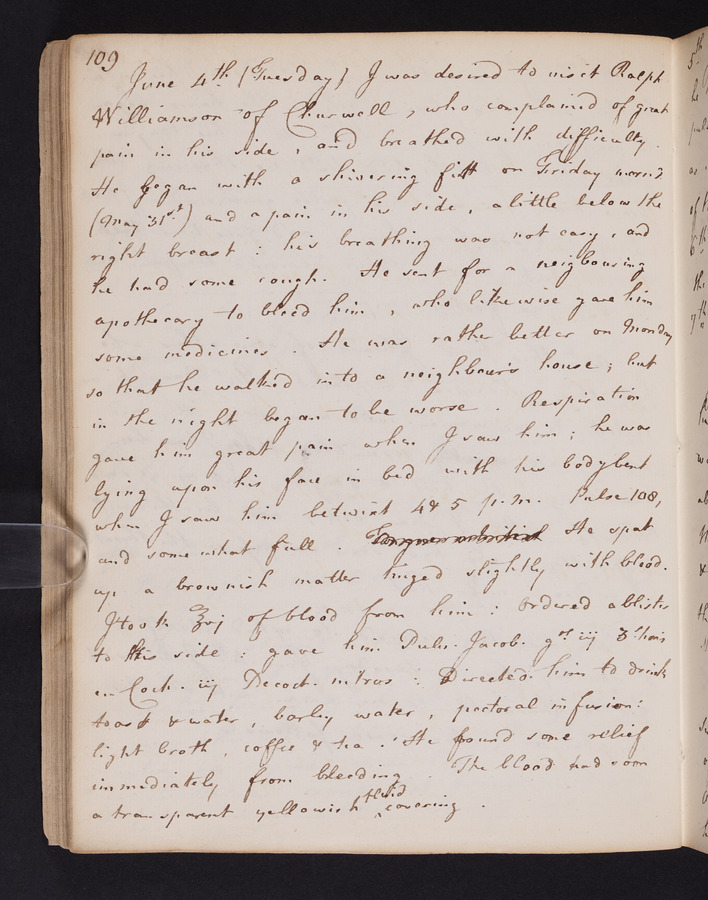 109
June 4th. (Tuesday) I was desired to visit Ralph
Williamson of Churwell, who complained of great
pain in his side, and breathed with difficulty.
He began with a shivering fitt on Friday
(May 31st.) and a pain in his side, a little below the
right breast: his breathing was not easy, and
he had some cough. He sent for a neigbouring
apothecary to bleed him, who likewise gave him
some medicines. He was rather better on Monday
so that he walked into a neighbour's house; but
in the night began to be worse. Respiration
gave him great pain when I saw him; he was
lying upon his face in bed with his body bent
when I saw him betwixt 4 & 5 p.m. Pulse 108,
and somewhat full. He spat
up a brownish matter tinged slightly with blood.
I took of blood from him: ordered a blister
to his side: gave him Pulv. Jacob. gr. iij 3. horis
in Coch. iij Decoct. nitros: Directed him to drink
toast & water, barley water, pectoral infusion:
light broth, coffee & tea. He found some relief
immediately from bleeding. The blood had soon
a transparent yellowish fluid covering.